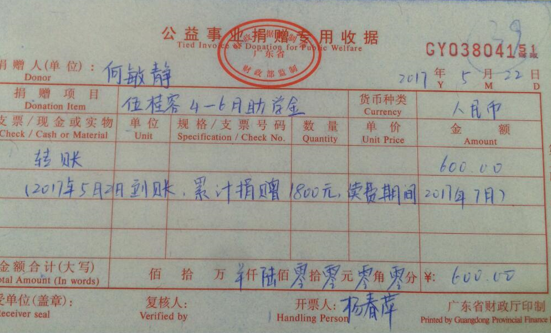 公益事业捐赠专用收据
Tied Invoice of Donation for Public Welfare
财政部监制
广东省
GY03804151
捐赠人(单位): 何敏静
Donor
2017年 5月 22日
Y M D
捐赠项目 伍桂容 4-6月助资金 货币种类 人民币
Donation Item Currency
支票/现金或实物 单位 规格/支票号码 数量 单价 金额
Check / Cash or Material Unit Specification / Check No. Quantity Unit Price Amount
转账 600.00
(2017年5月2日到账,累计捐赠1800元,续费期间2017年7月)
金额合计(大写) 佰 拾 万 仟陆佰零拾零元零角零分 ¥: 600.00
Total Amount (In words)
接受单位(盖章): 复核人: 开票人: 杨春萍 广东省财政厅印制
Receiver seal Verified by Handling Person Printed by Guangdong Provincial Finance